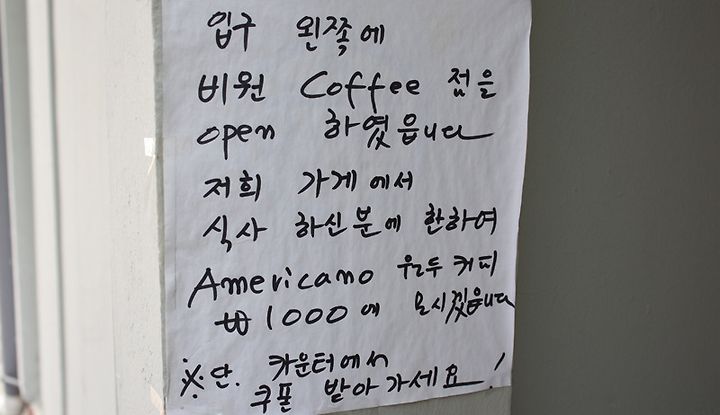 입구 왼쪽에
비원 Coffee 점을
open 하였읍니다
저희 가게에서
식사 하신분에 한하여
Americano 원두 커피
₩1000에 모시겠읍니다
※단. 카운터에서
쿠폰 받아가세요!